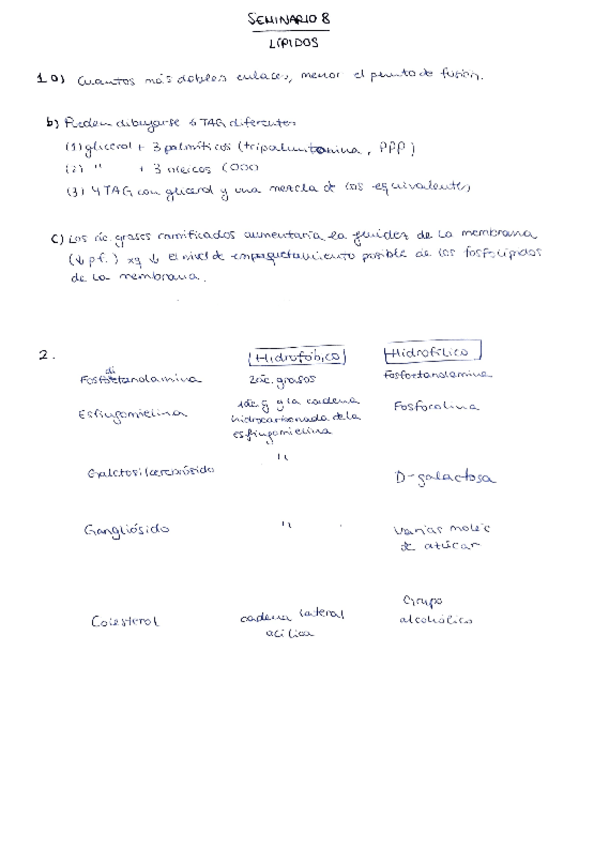 SEMINARIO 8
LÍPIDOS
1 a) Cuantos más dobles enlaces, menor el punto de fusión.
b) Pueden dibujarse 6 TAG diferentes
(1) glicerol + 3 palmíticos (tripalmitonina, PPP)
(2) " + 3 oleicos (OOO)
(3) 4 TAG con glicerol y una mezcla de los equivalentes
c) Los ác. grasos ramificados aumentaría la fluidez de la membrana
(↓ p.f.) xq ↓ el nivel de empaquetamiento posible de los fosfolípidos
de la membrana.
2. Hidrofóbico Hidrofílico
Fosfatidiletanolamina 2 ác. grasos fosfoetanolamina
Esfingomielina 1 ác. g y la cadena Fosfocolina
hidrocarbonada de la
esfingomielina
Galactosilcerebrósido " D-galactosa
Gangliósido " Varias moléc
de azúcar
Colesterol cadena lateral Grupo
acílica alcohólico